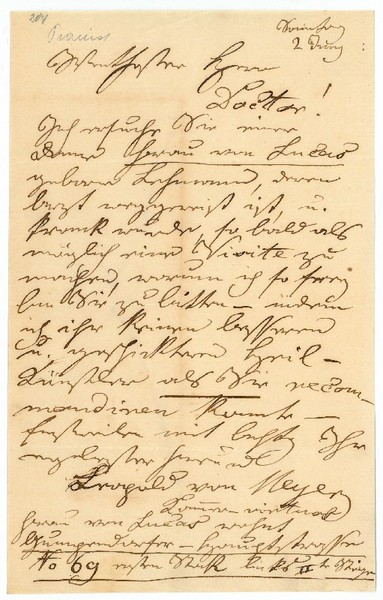 204
Pianist
Sonntag
2 Juny
Werthester Herr
Doctor!
Ich ersuche Sie einer
Dame Frau von Lucas
geborne Lehmann, deren
Arzt weggereist ist, u.
krank wurde, so bald als
möglich eine Visite zu
machen, warum ich so frey
bin Sie zu bitten – indem
ich ihr keinen besseren
u. geschickteren Heil-
künstler als Sie recom-
mandiren konnte –
Einstweilen mit Ihr
ergebenster Freund
Leopold von Meyer
Kammervirtuos
Frau von Lucas wohnt
Gumpendorfer-Hauptstrasse
No 69 ersten Stock links IIte Stiege